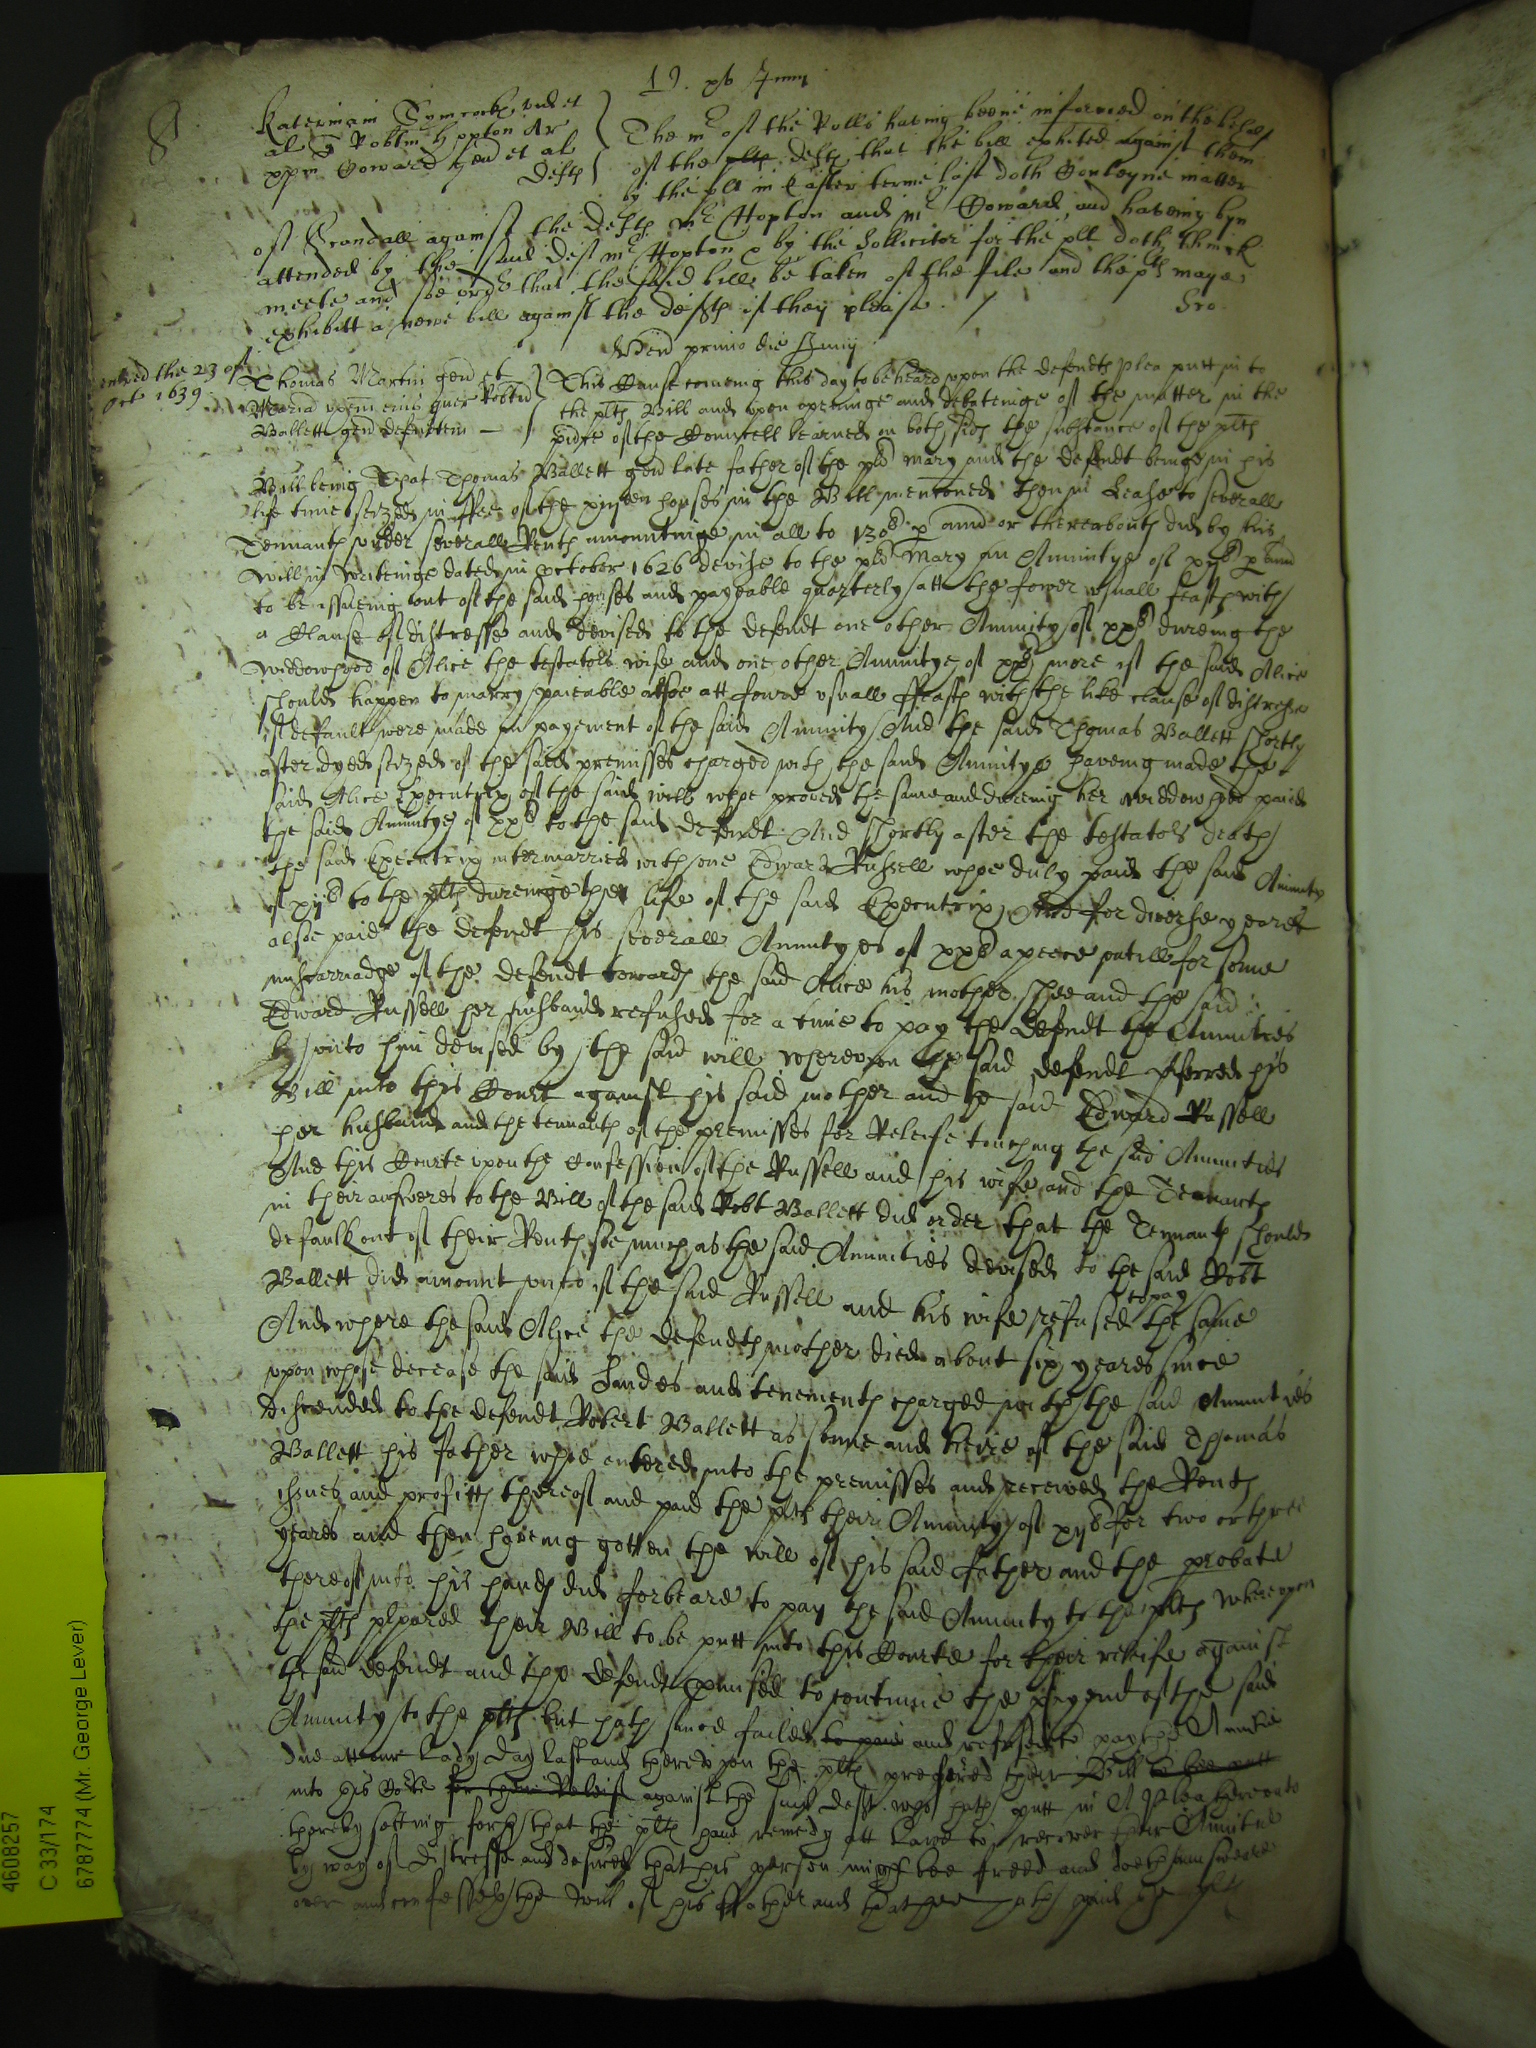 19. 
Katerinam Tymcock vid et
al Robtm Hopton Ar
xpm Coward gen et al
Defts
The mr of the Rolls having beene informed on the behalf
of the plts defts that the bill exhited against them
by the plt in Easter terme last doth Conteyne matter
of Scandall against the Defts mr Hopton and mr Coward, and haveing byn
attended by the said Deft mr Hopton & by the Sollicitor for the plt doth think
meete and soe ordr that the said bill be taken of the file and the plts maye
exhibitt a newe bill against the defts if they please /
entred the 23 of
Oct 1639
primo die Junij
Thomas Martin gen et
Maria uxem eius quer Robtu
Ballett gen defenten
This Cause comeing this day to be heard upon the defendts plea putt in to
the plts Bill and upon opeinge and debateinge of the matter in the
pnce of the Councell learned on both sides the substance of the plts
Bill being That Thomas Ballett gen late father of the pld Mary and the defendt beinge in his
life time seized in ffee of the houses in the Bill mentoned then in Lease to severall
Tennants under severall Rents amountinge in all to 130l p annu or thereabouts did by his
Will in Writeinge dated in October 1626 devise to the pld Mary an Annuitye of xijl p annu
to be issueing out of the said houses and payeable quarterly att the fower usuall feasts with
a Clause of distresse and devised to the defendt one other Annuity of xxl dureing the
Widdowhood of Alice the testators wife and one other Annuitye of xxl more if the said Alice
should happen to marry paieable alsoe att foure usuall ffeasts with the like clause of distresse
if default were made in payement of the said Annuity And the said Thomas Ballett shortly
after dyed seized of the said premisses charged with the said Annuitye haveing made the
said Alice Executrix of the said will whoe proved the same and dureing her widdowhood paied
the said Annuitye of xxl to the said defendt And shortly after the testators death
the said Executrix intermarried with one Edward Russell whoe duly paid the said Annuity
of xijl to the plts dureinge the life of the said Executrix And for diverse yeares
alsoe paid the defendt his severall Annuityes of xxl apeece untill for some
miscarriadge of the defendt towards the said Alice his mother shee and the said
Edward Russell her husband refused for a time to pay the defendt the Annuities
by unto him devised by the said will whereupon the said defendt pferred his
Bill into this Court against his said mother and the said Edward Russell
her husband and the tennants of the premisses for Releife touching the said Annuities
And this Courte upon the Confession of the Russell and his wife and the Tennants
in their answeres to the Bill of the said Robt Ballett did order that the Tennants should
defaulk out of their Rents soe much as the said Annuities devised to the said Robt
Ballett did amount unto if the said Russell and his wife refused to pay the same
And where the said Alice the defendts mother died about six yeares since
upon whose decease the said Landes and tenements charged with the said Annuities
discended to the defendt Robert Ballett as sonne and heire of the said Thomas
Ballett his father whoe entered into the premisses and received the Rents
issues and profitts thereof and paid the plts their Annuity of xijl for two or three
yeares and then haveing gotten the will of his said father and the probate
thereof into his hands did forbeare to pay the said Annuity to the plts whereupon
the plts ppared their Bill to be putt into this Courte for their releife against
the said defendt and the defendt pmised to continue the paymt of the said
Annuity to the plts but hath since failed to paie and refused to pay the Annuitie
due att our Lady Day last and thereupon the plts preferred their Bill to bee putt
into this Corte for their Releife against the said Deft who hath putt in A Plea thereunto
thereby setting forth that the plts have remedy att Lawe to recover their Annuitie
by way of distresse and desired that his person might bee freed and doeth answeare
over and confesseth the Will of his ffather and that hee hath paid the plts
4608257
C 33/174
6787774 (Mr. George Lever)